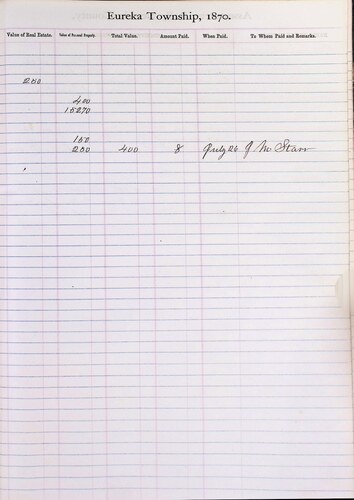 Eureka Township, 1870.
Value of Real Estate. Value of Personal Property. Total Value. Amount Paid. When Paid. To Whom Paid and Remarks.
250
400
15270
150
250 400 8 July 26 J M Starr